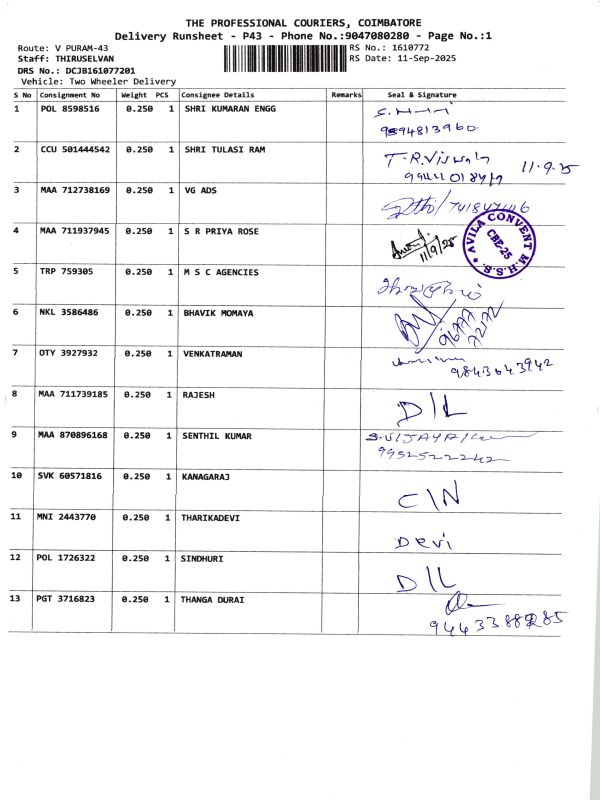 THE PROFESSIONAL COURIERS, COIMBATORE
Delivery Runsheet - P43 - Phone No.:9047080280 - Page No.:1
Route: V PURAM-43 RS No.: 1610772
Staff: THIRUSELVAN RS Date: 11-Sep-2025
DRS No.: DCJB161077201
Vehicle: Two Wheeler Delivery
S No Consignment No Weight PCS Consignee Details Remarks Seal & Signature
1 POL 8598516 0.250 1 SHRI KUMARAN ENGG
9894813960
2 CCU 501444542 0.250 1 SHRI TULASI RAM T.R.Viswah
11.9.25
3 MAA 712738169 0.250 1 VG ADS
4 MAA 711937945 0.250 1 S R PRIYA ROSE 11/9/25
AVILA CONVENT M.H.S.S. CBE-25
5 TRP 759305 0.250 1 M S C AGENCIES
6 NKL 3586486 0.250 1 BHAVIK MOMAYA 96777
72172
7 OTY 3927932 0.250 1 VENKATRAMAN
9843643942
8 MAA 711739185 0.250 1 RAJESH D/L
9 MAA 870896168 0.250 1 SENTHIL KUMAR
9952522242
10 SVK 60571816 0.250 1 KANAGARAJ C/N
11 MNI 2443770 0.250 1 THARIKADEVI Devi
12 POL 1726322 0.250 1 SINDHURI D/L
13 PGT 3716823 0.250 1 THANGA DURAI